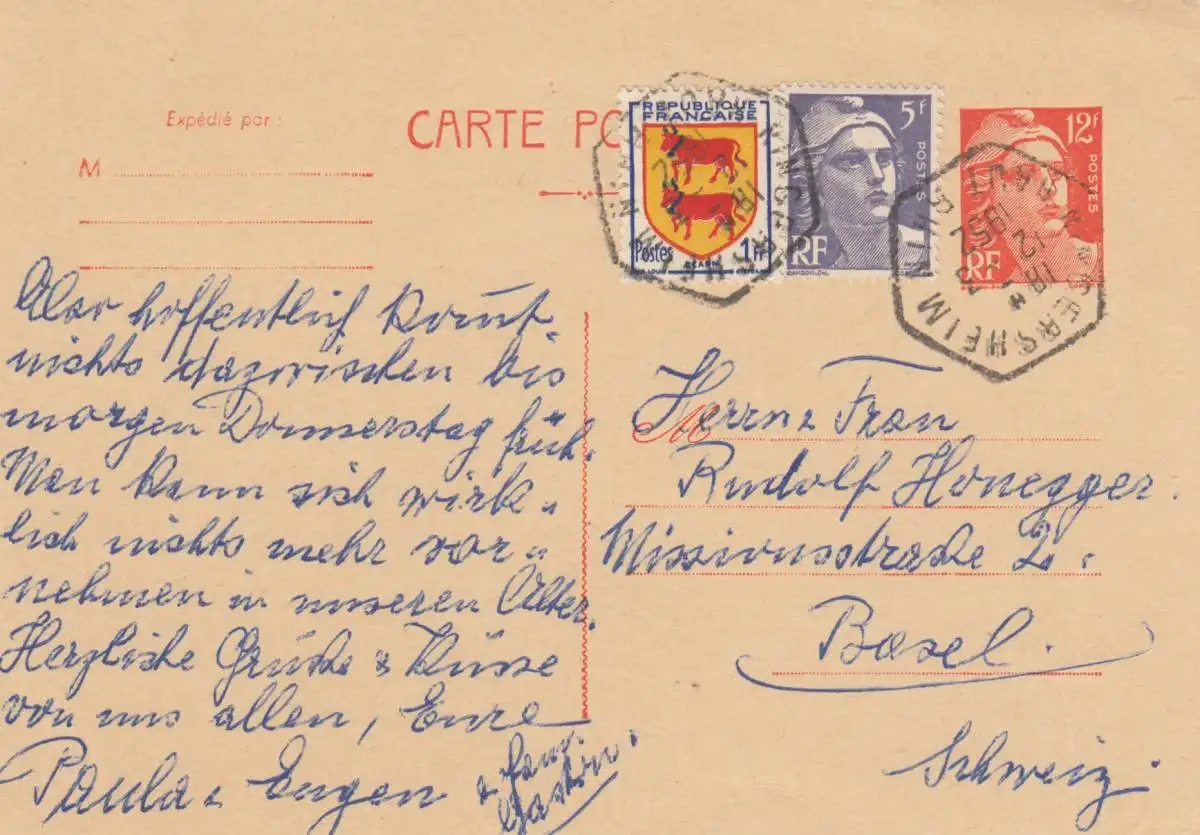 Expédié par :
CARTE PO
M
REPUBLIQUE
FRANÇAISE
Postes 1Fr
BÉARN
5f
POSTES
RF
GANDON
12f
POSTES
RF
KINGERSHEIM
HT RHIN
18 H
12 3
1952
Aber hoffentlich kommt
nichts dazwischen bis
morgen Donnerstag früh.
Man kann sich wirk-
lich nichts mehr vor-
nehmen in unseren Alter.
Herzliche Grüsse & Küsse
von uns allen, Eure
Paula & Eugen
& Fam.
Gaston.
M
Herrn & Frau
Rudolf Honegger.
Missionsstrasse 2.
Basel.
Schweiz.